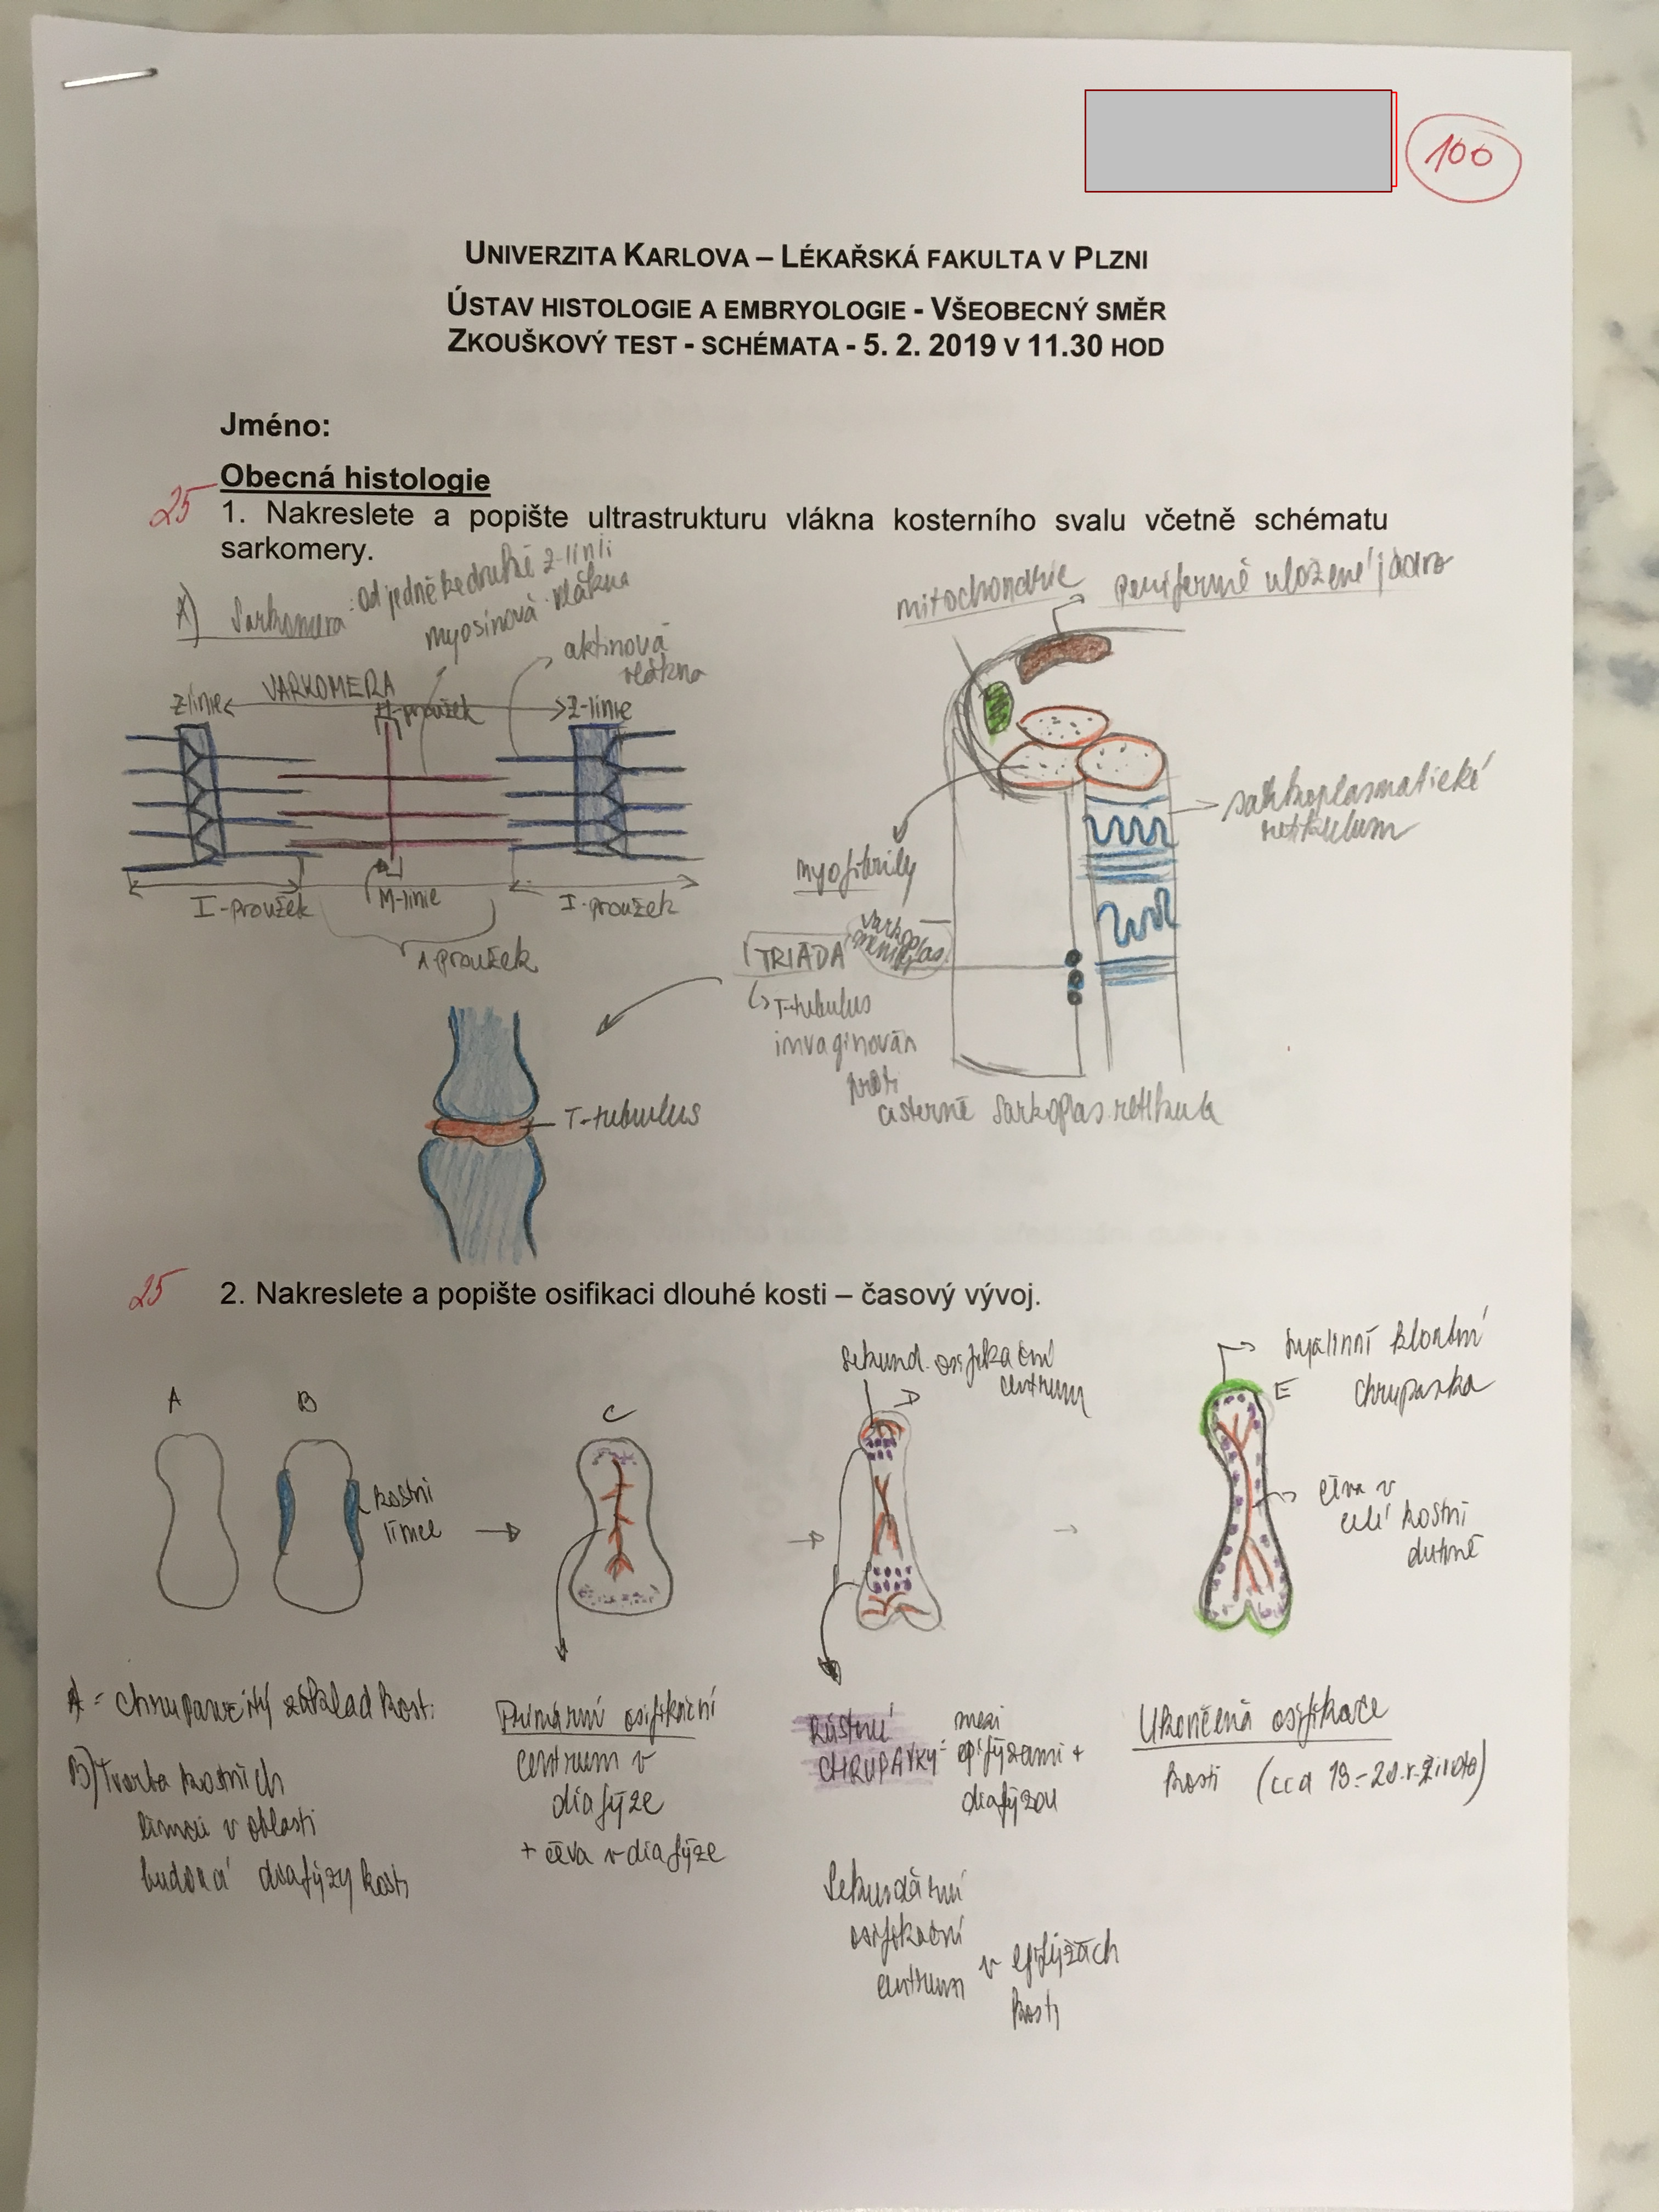 100
UNIVERZITA KARLOVA – LÉKAŘSKÁ FAKULTA V PLZNI
ÚSTAV HISTOLOGIE A EMBRYOLOGIE - VŠEOBECNÝ SMĚR
ZKOUŠKOVÝ TEST - SCHÉMATA - 5. 2. 2019 V 11.30 HOD
Jméno:
Obecná histologie
25
1. Nakreslete a popište ultrastrukturu vlákna kosterního svalu včetně schématu
sarkomery.
A) Sarkomera: od jedné ke druhé Z-linii
myosinová vlákna
aktinová
vlákna
Z linie
VARKOMERA
H-proužek
Z-linie
I-proužek
M-linie
I-proužek
A proužek
mitochondrie
periferně uložené jádro
sarkoplasmatické
retikulum
myofibrily
TRIÁDA
T-tubulus
invaginován
proti
cisterně sarkoplas. retikula
T-tubulus
25
2. Nakreslete a popište osifikaci dlouhé kosti – časový vývoj.
A
B
kostní
límec
C
sekund. osifikační
centrum
D
hyalinní kloubní
chrupavka
E
céva v
celé kostní
dutině
A = chrupavčitý základ kosti
B) Tvorba kostních
límců v oblasti
budoucí diafýzy kosti
Primární osifikační
centrum v
diafýze
+ céva v diafýze
RŮSTNÉ
CHRUPAVKY =
mezi
epifýzami +
diafýzou
Sekundární
osifikační
centrum
v epifýzách
kosti
Ukončená osifikace
kosti (cca 19.-20.r.života)